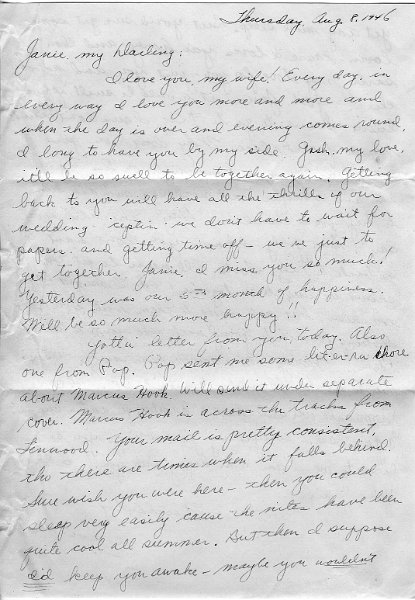 Thursday, Aug 8, 1946
Janie, my Darling;
I love you, my wife! Every day, in
every way I love you more and more and
when the day is over and evening comes round,
I long to have you by my side. Gosh, my love,
it'll be so swell to be together again. Getting
back to you will have all the thrills of our
wedding 'ceptin' we don't have to wait for
papers and getting time off - we've just to
get together. Janie, I miss you so much!
Yesterday was our 5th month of happiness.
Will be so much more happy!!
Gottin' letter from you today. Also
one from Pop. Pop sent me some lit-er-ra-chore
about Marcus Hook. Will send it under separate
cover. Marcus Hook is across the tracks from
Linwood. Your mail is pretty consistent,
tho there are times when it falls behind.
Sure wish you were here - then you could
sleep very easily cause the nites have been
quite cool all summer. But then I suppose
I'd keep you awake - maybe you wouldn't